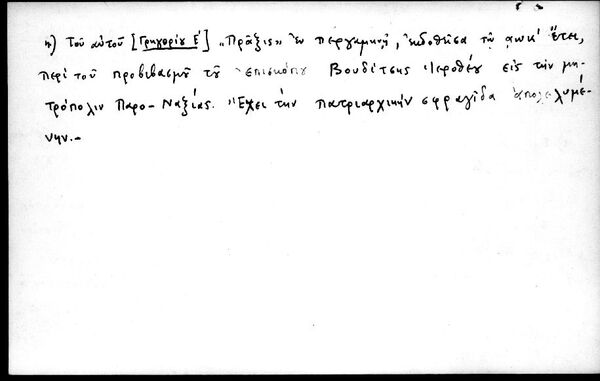 η) Τοῦ αὐτοῦ [Γρηγορίου Ε΄] "Πρᾶξις" ἐν περγαμηνῇ, ἐκδοθεῖσα τῷ αωκ΄ ἔτει,
περὶ τοῦ προβιβασμοῦ τοῦ ἐπισκόπου Βουδίτσης Ἱεροθέου εἰς τὴν μη-
τρόπολιν Παρο-Ναξίας. Ἔχει τὴν πατριαρχικὴν σφραγῖδα ἀπολελυμέ-
νην.-